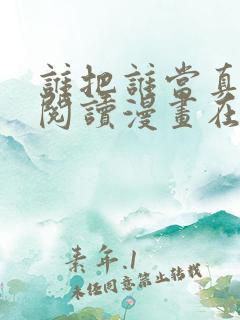 誰把誰當真
閱讀漫畫在
素年.1
未经同意禁止转载